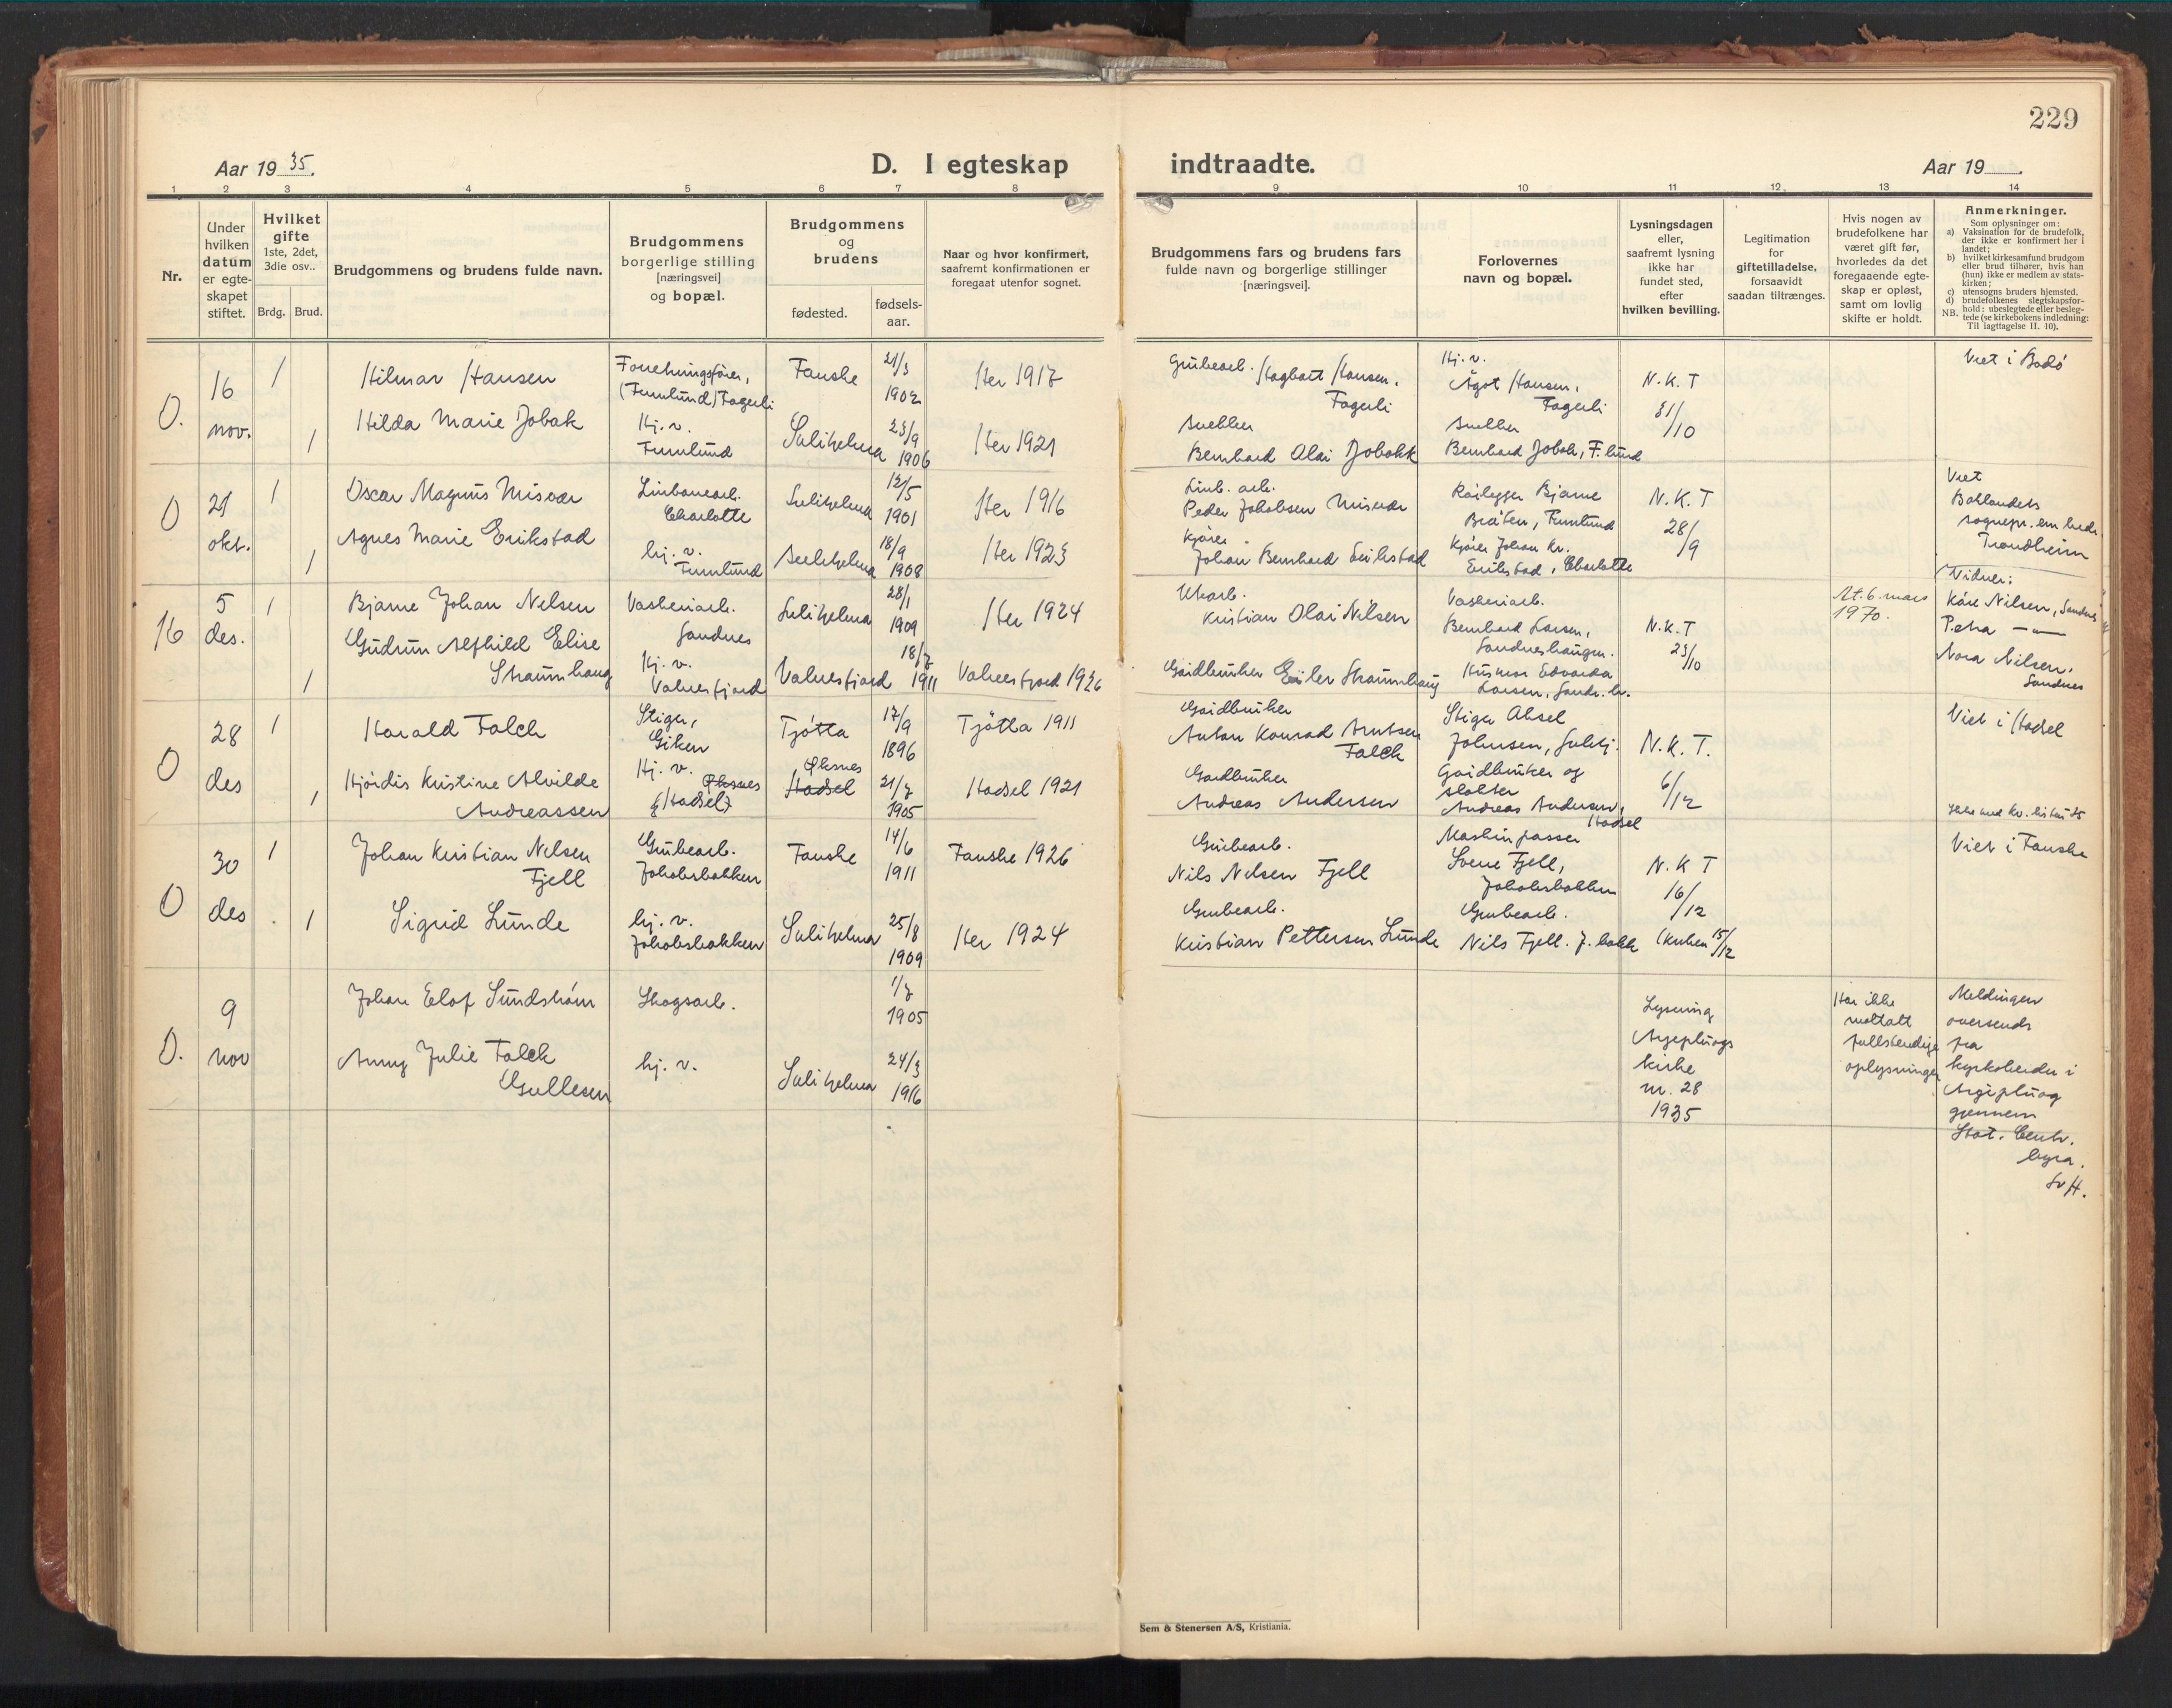 229
Aar 1935.
D. I egteskap
indtraadte.
Aar 19
1 2 3 4 5 6 7 8 9 10 11 12 13 14
Nr.
Under
hvilken
datum
er egte-
skapet
stiftet.
Hvilket
gifte
1ste, 2det,
3die osv..
Brdg. Brud.
Brudgommens og brudens fulde navn.
Brudgommens
borgerlige stilling
[næringsvei]
og bopæl.
Brudgommens
og
brudens
fødested.
fødsels-
aar.
Naar og hvor konfirmert,
saafremt konfirmationen er
foregaat utenfor sognet.
Brudgommens fars og brudens fars
fulde navn og borgerlige stillinger
[næringsvei].
Forlovernes
navn og bopæl.
Lysningsdagen
eller,
saafremt lysning
ikke har
fundet sted,
efter
hvilken bevilling.
Legitimation
for
giftetilladelse,
forsaavidt
saadan tiltrænges.
Hvis nogen av
brudefolkene har
været gift før,
hvorledes da det
foregaaende egte-
skap er opløst,
samt om lovlig
skifte er holdt.
Anmerkninger.
Som oplysninger om:
a) Vaksination for de brudefolk,
der ikke er konfirmert her i
landet;
b) hvilket kirkesamfund brudgom
eller brud tilhører, hvis han
(hun) ikke er medlem av stats-
kirken;
c) utensogns bruders hjemsted.
d) brudefolkenes slegtskapsfor-
hold: ubeslegtede eller besleg-
NB. tede (se kirkebokens indledning:
Til iagttagelse II. 10).
0.
16
nov.
1
Hilmar Hansen
(Furulund) Fagerli
Fauske
21/3
1902
Her 1917
Grubearb. Hagbart Hansen,
Fagerli
Hj. v.
Ågot Hansen,
Fagerli
N.K.T
31/10
Viet i Bodø
1
Hilda Marie Jobak
Hj. v.
Furulund
Sulitjelma
23/9
1906
Her 1921
Snekker
Bernhard Olai Jobakk
Snekker
Bernhard Jobak, F.lund
0
21
okt.
1
Oscar Magnus Misvær
Linbanearb.
Charlotte
Sulitjelma
12/5
1901
Her 1916
Linb. arb.
Peder Jakobsen Misvær
Rørlegger Bjarne
Bråten, Furulund
N.K.T
28/9
Viet
Baklandets
sognepr. embede
Trondheim
1
Agnes Marie Erikstad
hj. v.
Furulund
Sulitjelma
18/9
1908
Her 1923
Kjører
Johan Bernhard Erikstad
Kjører Johan Kr.
Erikstad, Charlotte
16
5
des.
1
Bjarne Johan Nilsen
Vaskeriarb.
Sandnes
Sulitjelma
28/1
1909
Her 1924
Kristian Olai Nilsen
Vaskeriarb.
Bernhard Larsen,
Sandneshaugen.
N.K.T
23/10
At. 6. mars
1970.
Vidner:
Kåre Nilsen, Sandnes
Petra — " —
Nora Nilsen,
Sandnes
1
Gudrun Alfhild Elise
Straumhaug
Hj. v.
Valnesfjord
Valnesfjord
18/7
1911
Valnesfjord 1926
Gårdbruker Eiler Straumhaug
Husmor Edvarda
Larsen, Sandn.h.
0
28
des
1
Harald Falch
Stiger,
Giken
Tjøtta
17/9
1896
Tjøtta 1911
Gårdbruker
Anton Konrad Arntsen
Falch
Stiger Aksel
Johnsen, Sulitj.
N.K.T.
6/12
Viet i Hadsel
1
Hjørdis Kristine Alvilde
Andreassen
Hj. v. Øksnes
(Hadsel)
Øksnes
Hadsel
21/7
1905
Hadsel 1921
Gardbruker
Andreas Andersen
Gårdbruker og
slakter
Andreas Andersen,
Hadsel
0
30
des
1
Johan Kristian Nilsen
Fjell
Grubearb.
Jakobsbakken
Fauske
14/6
1911
Fauske 1926
Grubearb.
Nils Nilsen Fjell
Maskinpasser
Sverre Fjell,
Jakobsbakken
N.K.T
16/12
Viet i Fauske
1
Sigrid Lunde
hj. v.
Jakobsbakken
Sulitjelma
25/8
1909
Her 1924
Grubearb.
Kristian Pettersen Lunde
Grubearb.
Nils Fjell. J.bakk
15/12
0.
9
nov
Johan Elof Sundström
Skogsarb.
1/7
1905
Lysning
Arjepluogs
kirke
nr. 28
1935
Har ikke
mottatt
fullstendige
oplysninger
Meldingen
oversendt
fra
kyrkoherden i
Arjepluog
gjennem
Stat. Centr.
byra.
Anny Julie Falch
Gullesen
hj. v.
Sulitjelma
24/3
1916
Sem & Stenersen A/S, Kristiania.